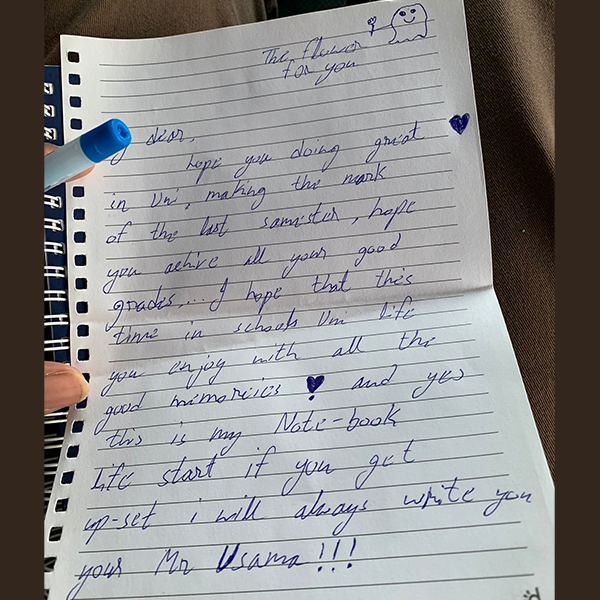 The flower
for you
dear,
hope you doing great
in Uni, making the mark
of the last samister, hope
you achive all your good
grades,... I hope that this
time in schools Uni life
you enjoy with all the
good memories and yes
this is my Note-book
life start if you get
up-set i will always write you
your Mr Usama!!!